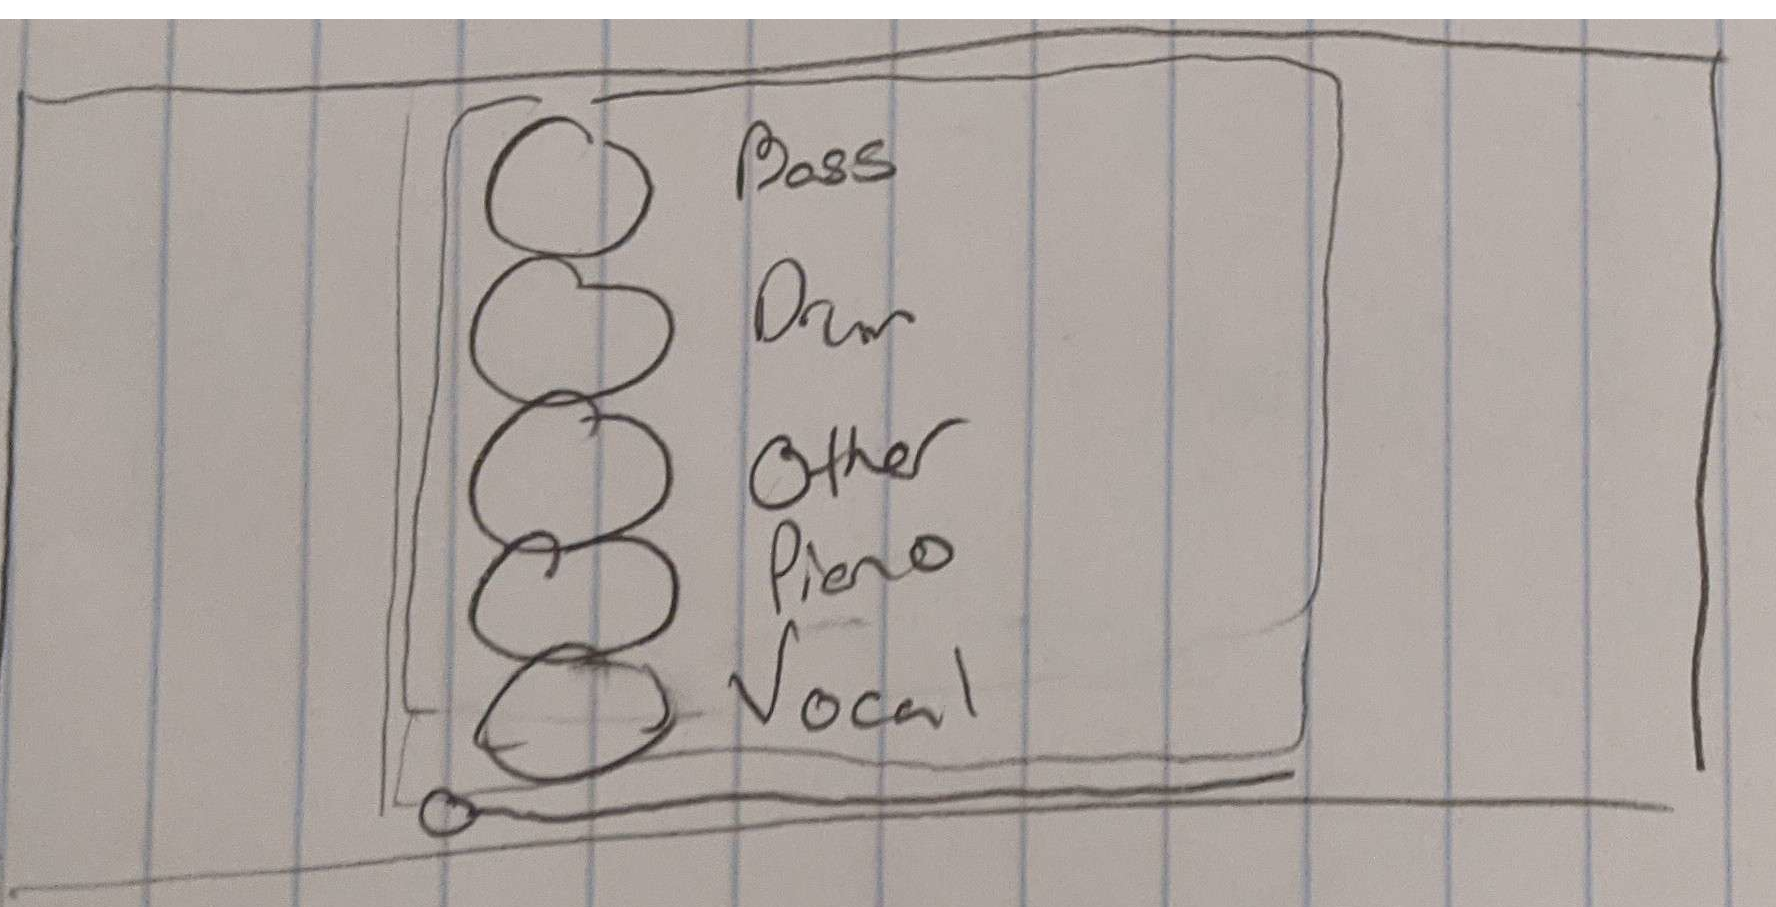 Bass
Drum
Other
Piano
Vocal